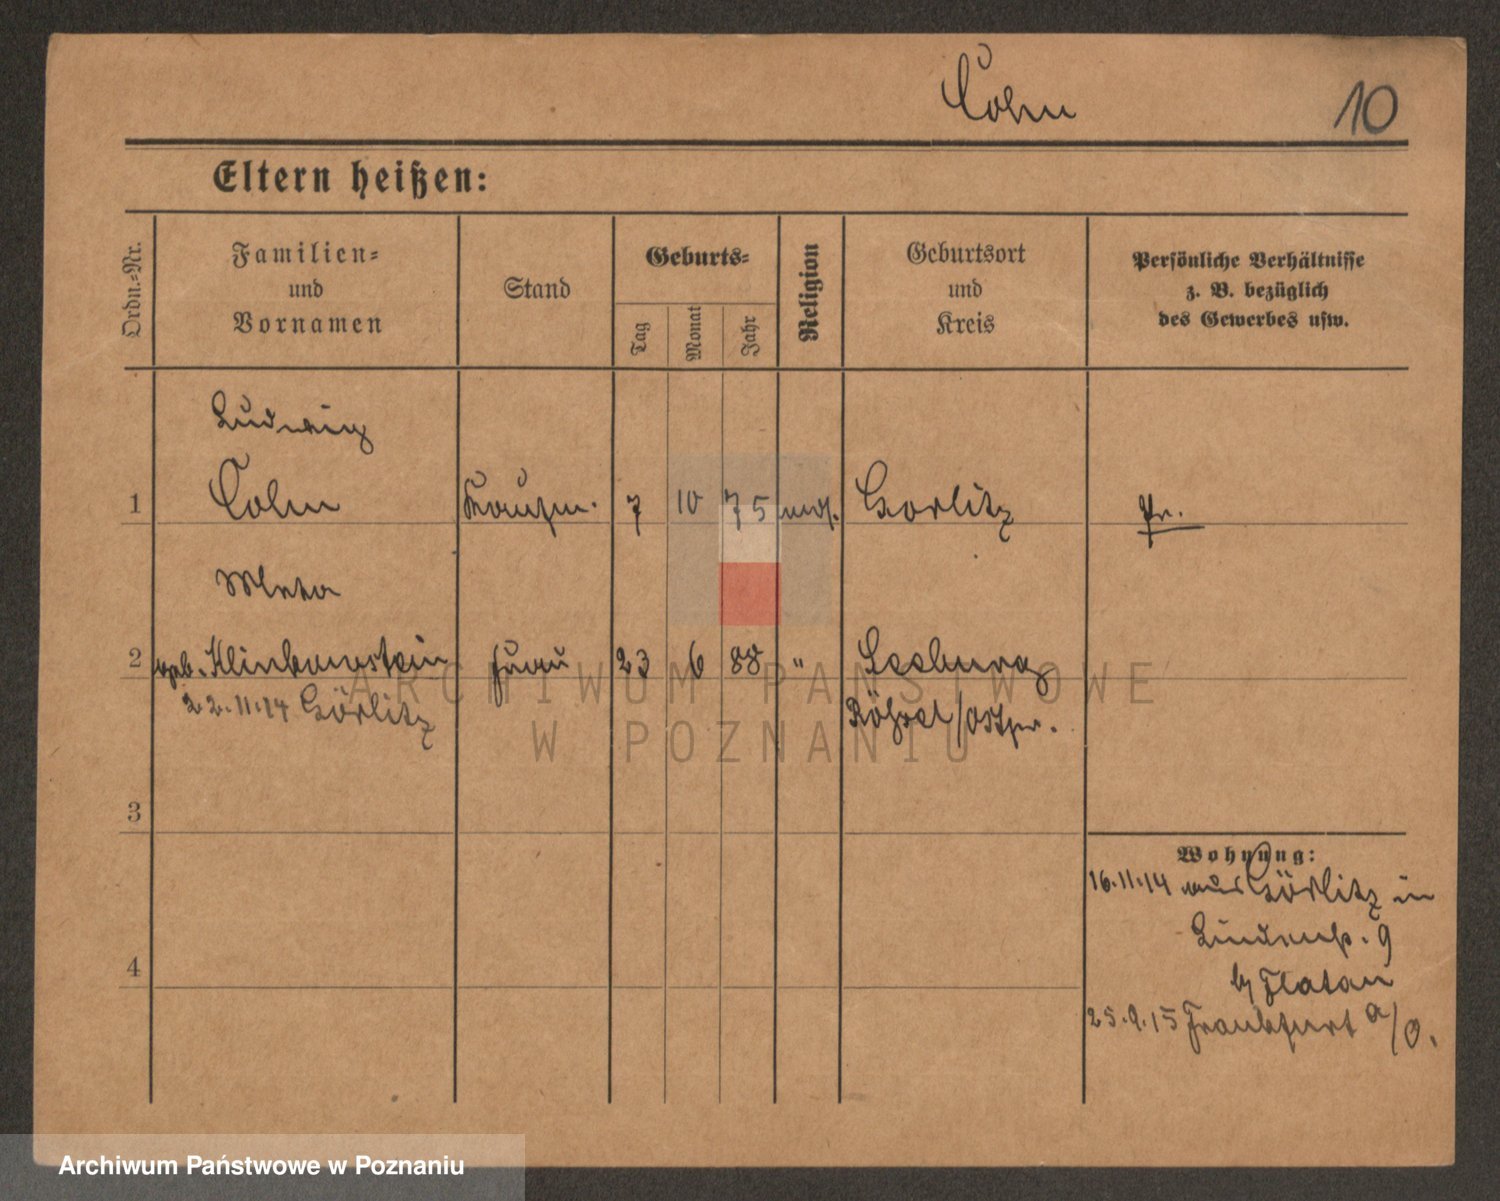 Cohn
10
Eltern heißen:
Ordn.-Nr.
Familien-
und
Vornamen
Stand
Geburts-
Tag
Monat
Jahr
Religion
Geburtsort
und
Kreis
Persönliche Verhältnisse
z. B. bezüglich
des Gewerbes usw.
Ludwig
1 Cohn Kaufm. 7 10 75 mos. Görlitz Pr.
Meta
2 geb. Frau 23 6 88 " Seeburg
22.11.14 Görlitz Rößel/Ostpr.
3
Wohnung:
16.11.14 aus Görlitz in
Lindenstr. 9
4
b/ Flatau
25.9.15 Frankfurt a/O.
ARCHIWUM PAŃSTWOWE
W POZNANIU
Archiwum Państwowe w Poznaniu